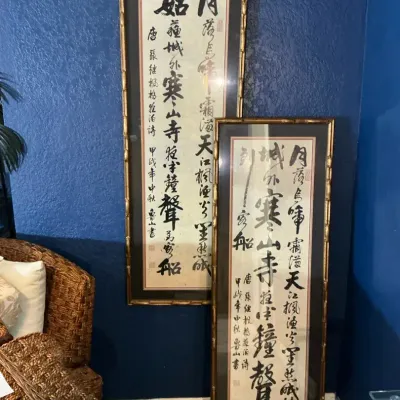 月落烏啼霜滿天江楓漁火對愁眠
姑蘇城外寒山寺夜半鐘聲到客船
唐張繼楓橋夜泊詩 甲戌年中秋 山書
月落烏啼霜滿天江楓漁火對愁眠
城外寒山寺夜半鐘聲
到客船
唐張繼楓橋夜泊詩
甲戌年中秋 山書